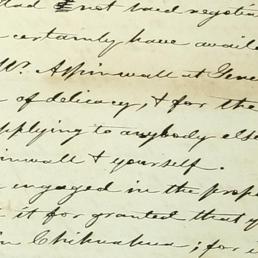 had not said negotia
certainly have availe
Mr. Aspinwall at Gene
of delicacy, & for the
pplying to anybody else
inwall & yourself.
engaged in the prope
it for granted that y
in Chihuahua; for i